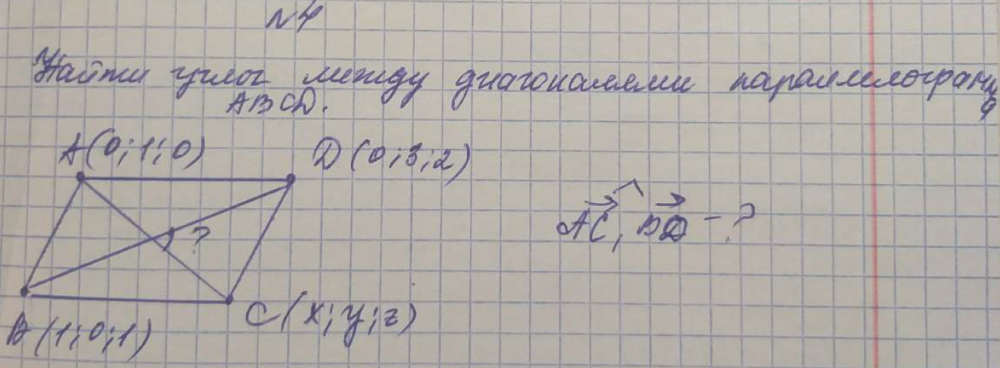 №4
Найти угол между диагоналями параллелограмма
ABCD.
A(0;1;0) D(0;3;2)
?
AC, BD - ?
B(1;0;1) C(x;y;z)